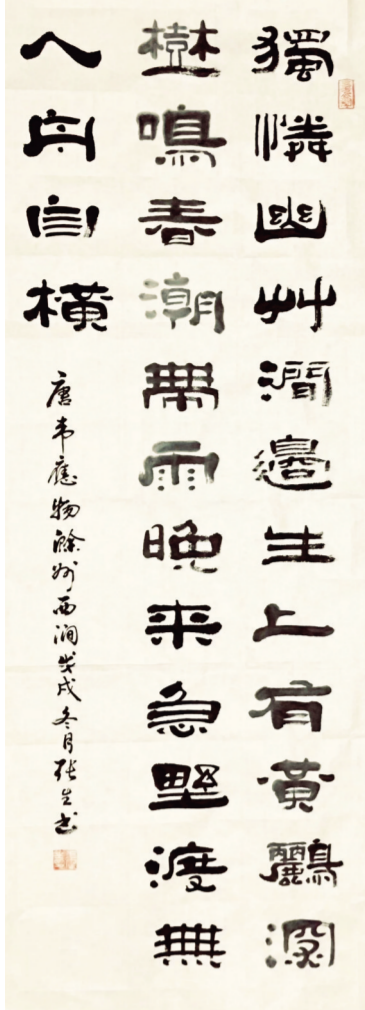 獨憐幽艸澗邊生上有黃鸝深
樹鳴春潮帶雨晚来急野渡無
人舟自橫
唐韋應物滁州西澗戊戌冬月張生書